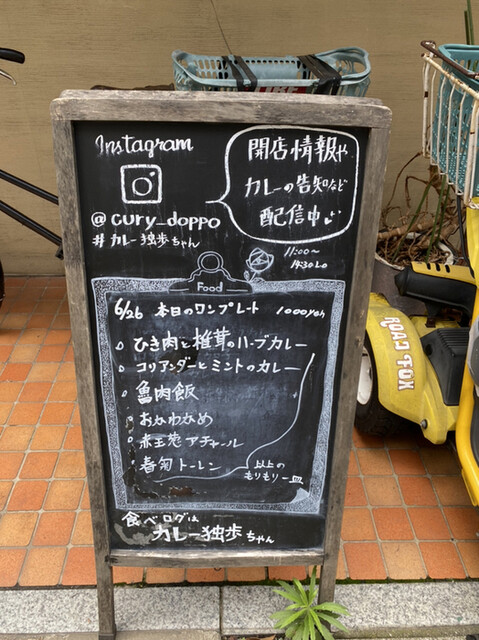 Instagram
@cury_doppo
#カレー独歩ちゃん
開店情報や
カレーの告知など
配信中
11:00〜
14:30Lo
Food
6/26 本日のワンプレート 1000yen
ひき肉と椎茸のハーブカレー
コリアンダーとミントのカレー
魯肉飯
おかわかめ
アチャール
トーレン
以上の
もりもり一皿
食べログは
カレー独歩ちゃん
ROAD FOX